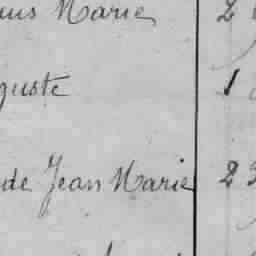 Marie 2
guste 1
de Jean Marie 23